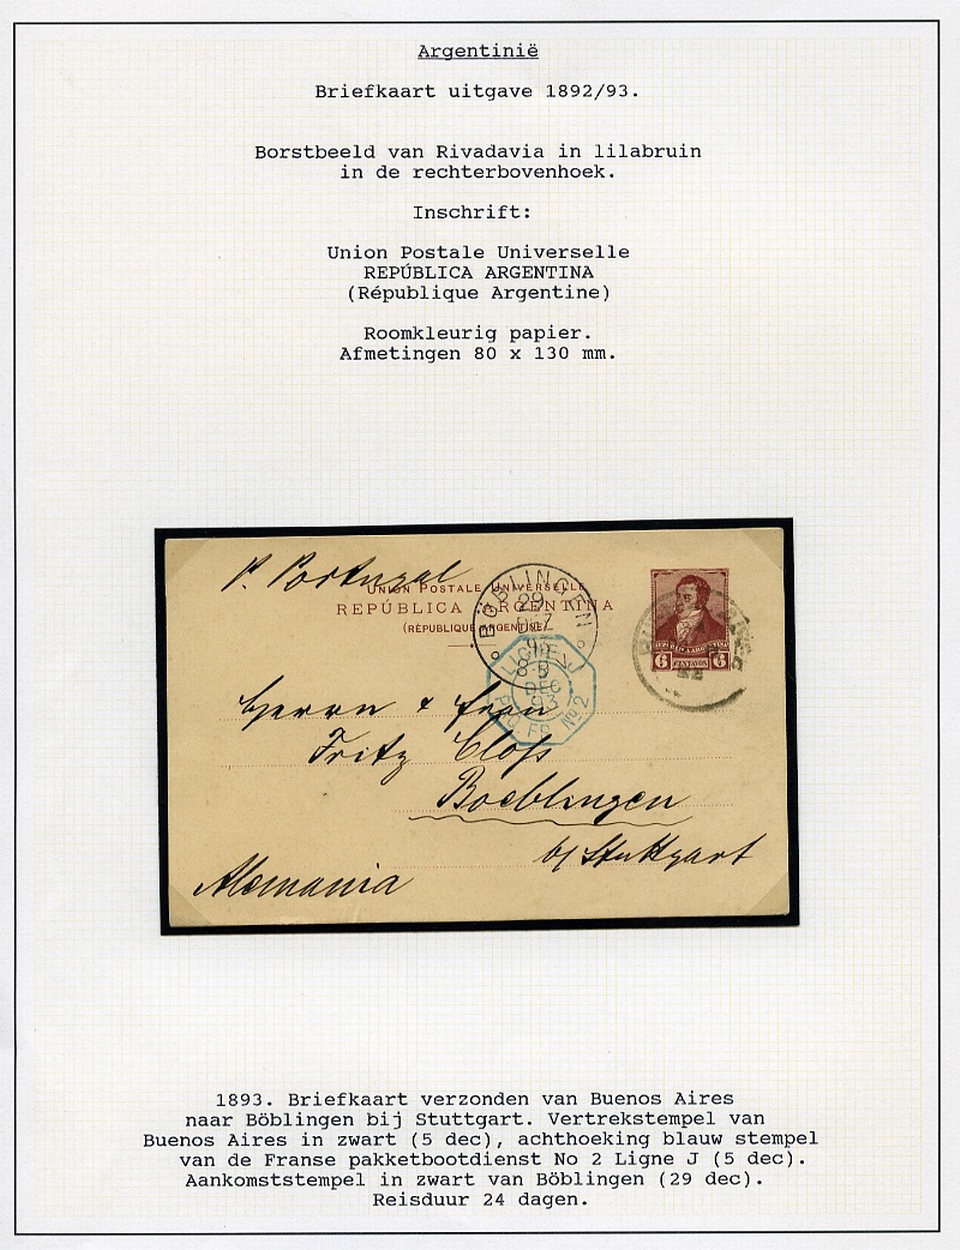 Argentinië
Briefkaart uitgave 1892/93.
Borstbeeld van Rivadavia in lilabruin
in de rechterbovenhoek.
Inschrift:
Union Postale Universelle
REPÚBLICA ARGENTINA
(République Argentine)
Roomkleurig papier.
Afmetingen 80 x 130 mm.
p. Portugal
UNION POSTALE UNIVERSELLE
REPÚBLICA ARGENTINA
(RÉPUBLIQUE ARGENTINE)
BÖBLINGEN
29
DEZ
93
8-9
LIGNE J
5
DEC
93
PAQ. FR. Nº 2
REPUBLICA ARGENTINA
6 CENTAVOS 6
Herrn & Frau
Fritz Closs
Boeblingen
b/ Stuttgart
Alemania
1893. Briefkaart verzonden van Buenos Aires
naar Böblingen bij Stuttgart. Vertrekstempel van
Buenos Aires in zwart (5 dec), achthoeking blauw stempel
van de Franse pakketbootdienst No 2 Ligne J (5 dec).
Aankomststempel in zwart van Böblingen (29 dec).
Reisduur 24 dagen.